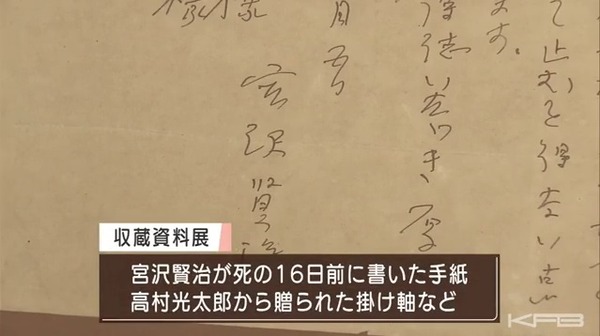 て止むを得ない
ます。
宮沢賢治
様
収蔵資料展
宮沢賢治が死の16日前に書いた手紙
高村光太郎から贈られた掛け軸など
KFB